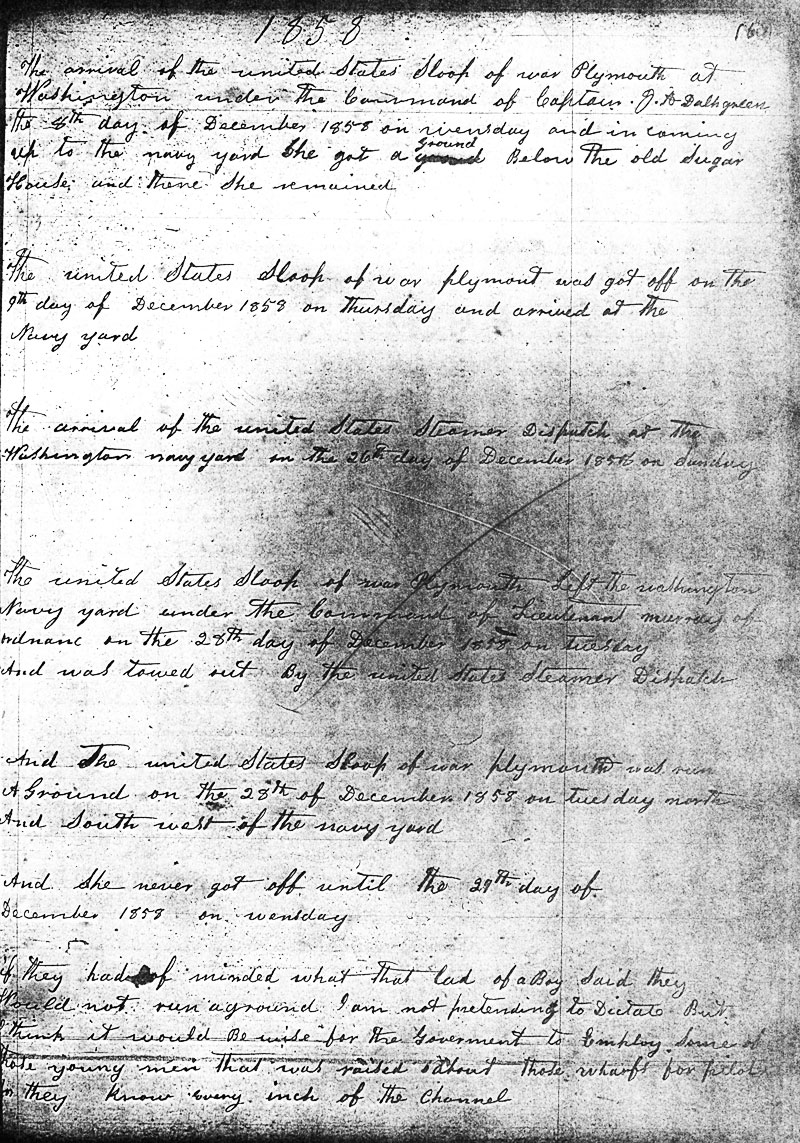 1858
168
The arrival of the united States Sloop of war Plymouth at
Washington under the Command of Captain J. A Dalhgreen
the 8th day of December 1858 on wensday and in coming
up to the navy yard She got a Ground Below the old Sugar
House and there She remained
The united States Sloop of war plymont was got off on the
9th day of December 1858 on thursday and arrived at the
Navy yard
The arrival of the united States Steamer Dispatch at the
Washington navy yard on the 26th day of December 1858 on Sunday
The united States Sloop of war Plymouth Left the washington
Navy yard under the Command of Lieutenant murray of
ordnanc on the 28th day of December 1858 on tuesday
And was towed out By the united States Steamer Dispatch
And The united States Sloop of war plymouth was run
A Ground on the 28th of December 1858 on tuesday north
And South west of the navy yard
And She never got off until the 29th day of
December 1858 on wensday
if they had of minded what that lad of a Boy Said they
Would not run aground I am not pretending to Dictate But
I think it would Be wise for the Goverment to Employ Some of
those young men that was raised about those wharfs for pilots
for they know every inch of the Channel